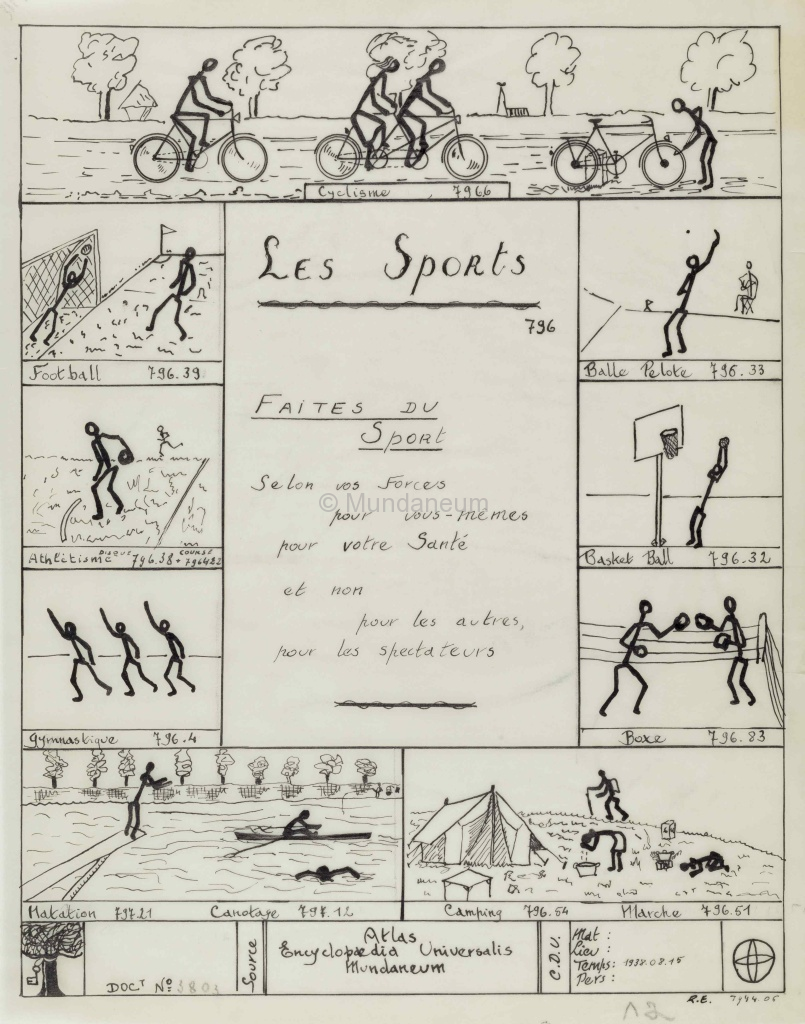 Cyclisme 7966
Les Sports
796
Football 796.39
Balle Pelote 796.33
Faites du
Sport
Selon vos Forces
© Mundaneum
pour vous-mêmes
pour votre Santé
et non
pour les autres,
pour les spectateurs
Athlétisme DISQUE 796.38 + COURSE 796422
Basket Ball 796.32
Gymnastique 796.4
Boxe 796.83
Natation 797.21
Canotage 797.12
Camping 796.54
Marche 796.51
DOCT No 3803
Source
Atlas
Encyclopædia Universalis
Mundaneum
C.D.U.
Mat :
Lieu :
Temps: 1938.08.15
Pers :
R.E.